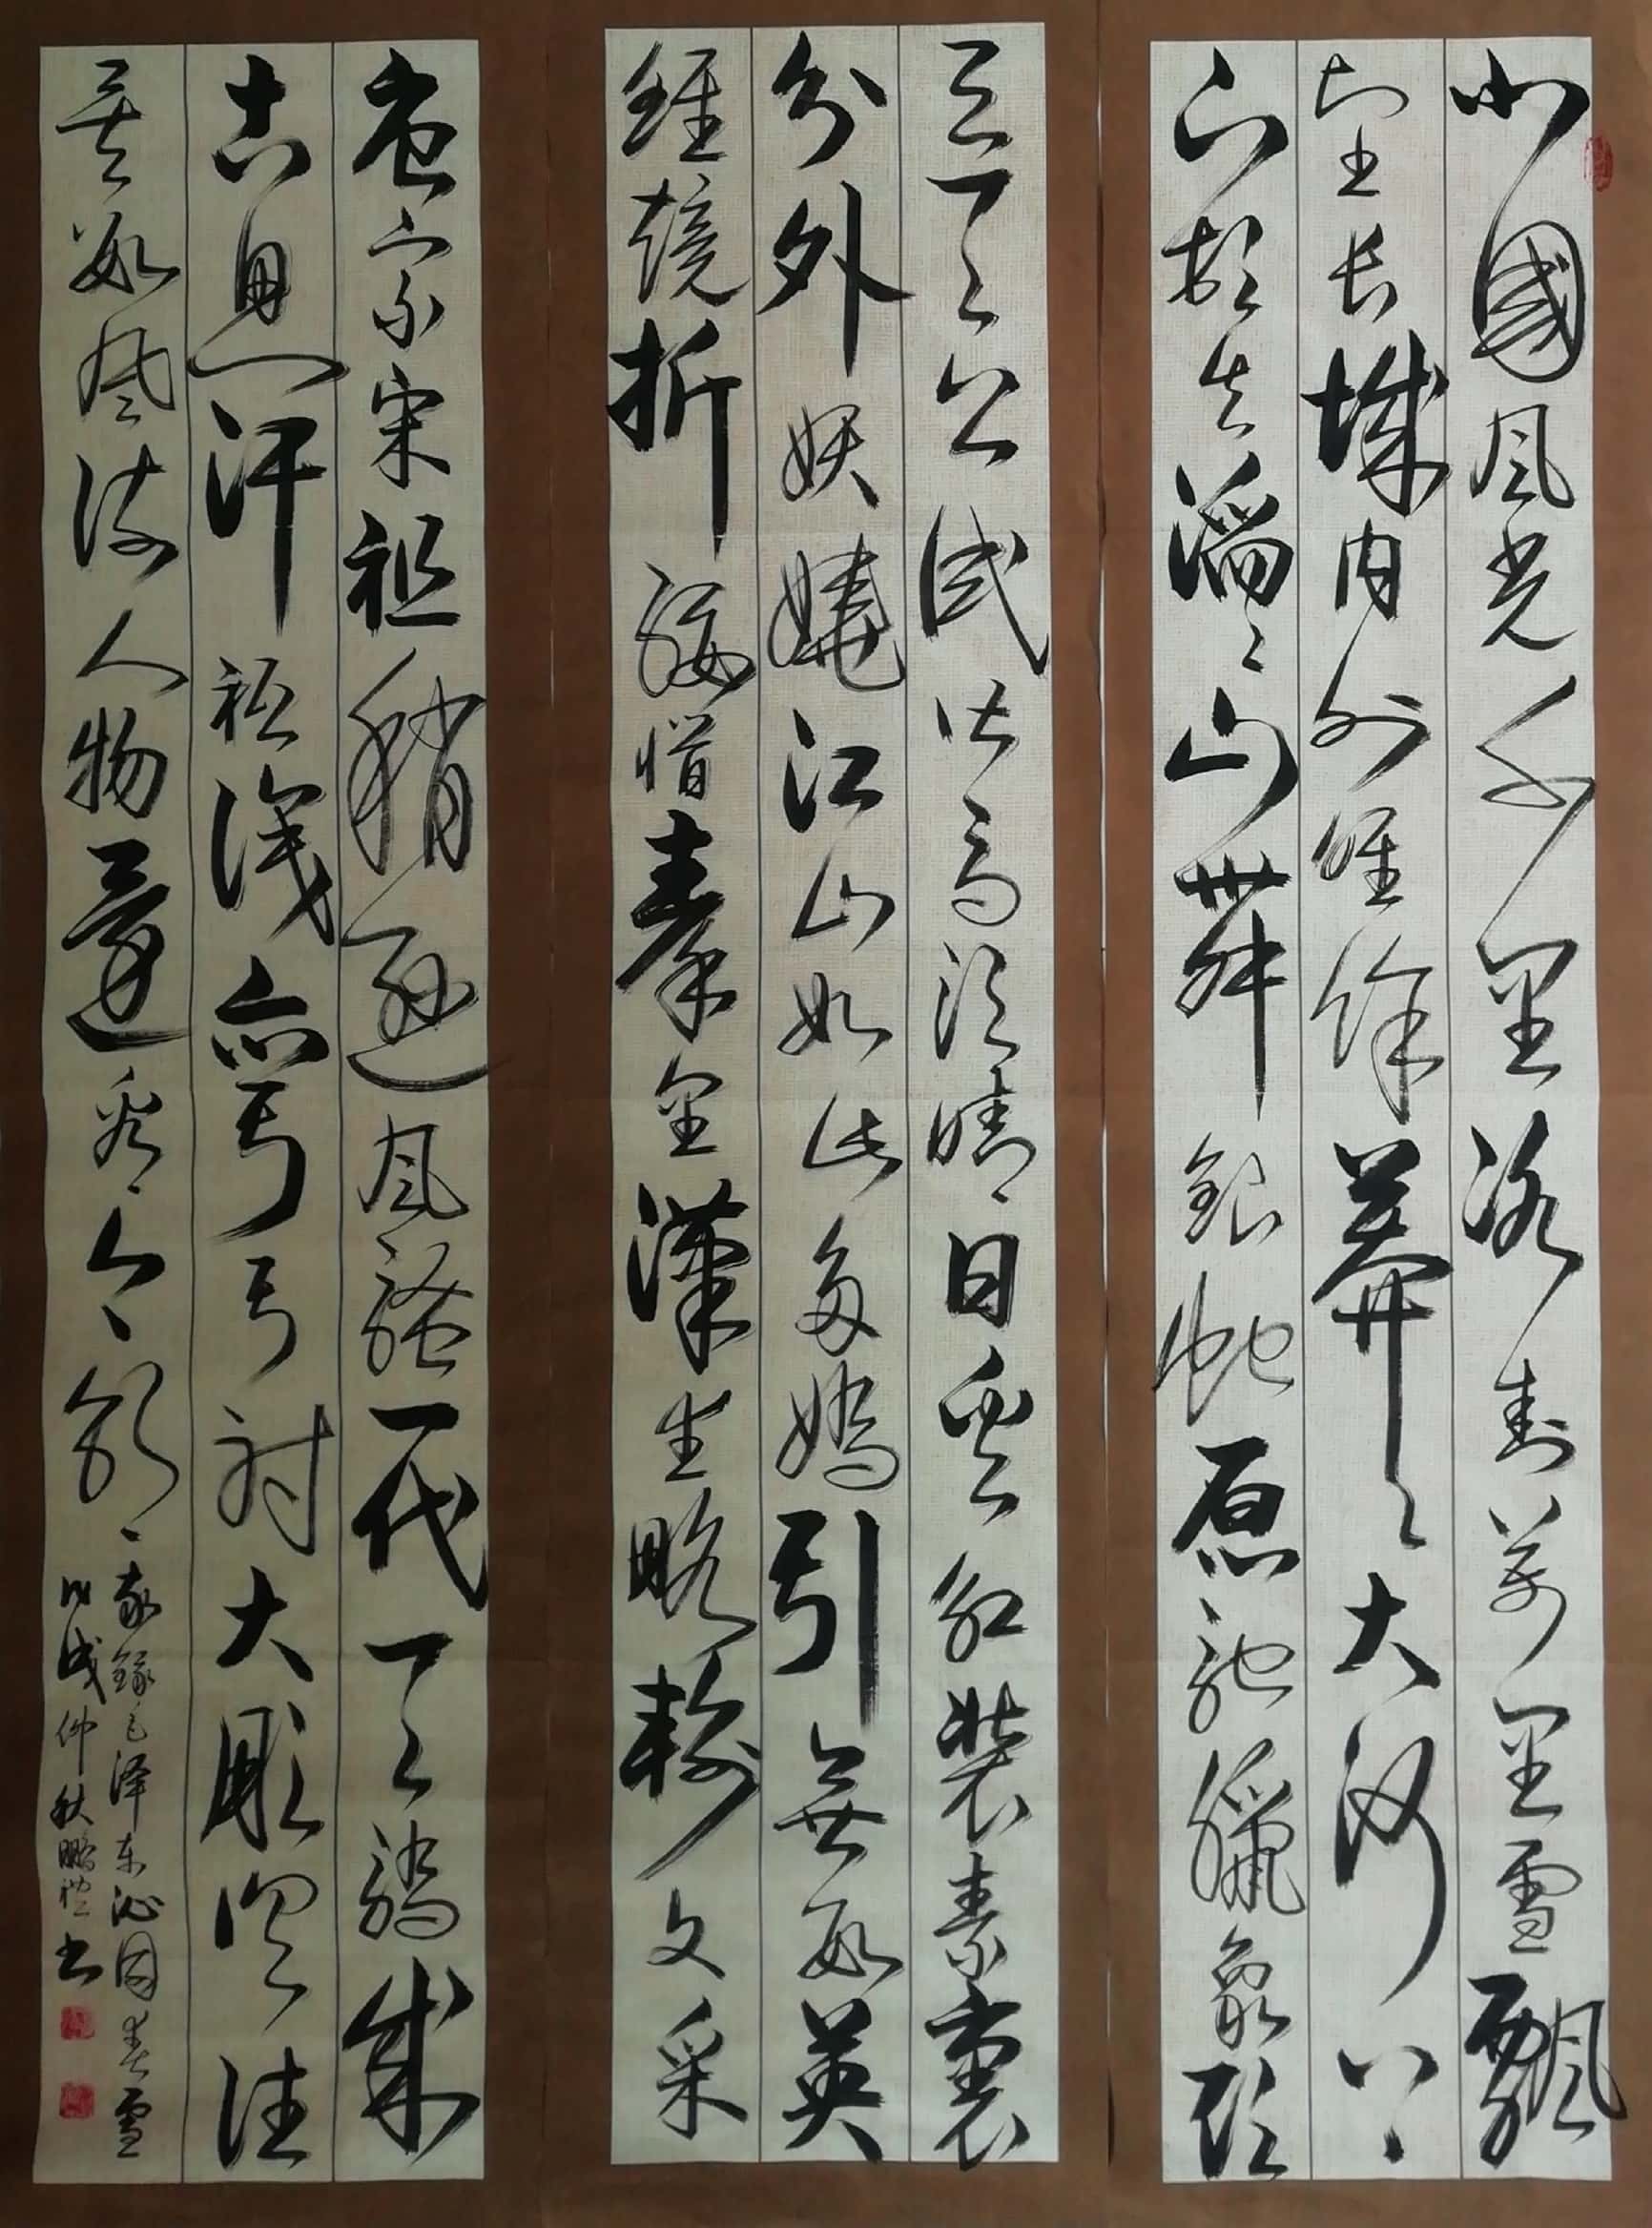 北國風光千里冰封萬里雪飄
望長城内外唯餘莽〻大河上
下頓失滔〻山舞銀蛇原馳蠟象欲
与天公試比高須晴日看紅裝素裹
分外妖嬈江山如此多嬌引無數英
雄競折腰惜秦皇漢武略輸文采
唐宗宋祖稍遜風騷一代天驕成
吉思汗祇識彎弓射大雕俱往
矣數風流人物還看今朝
敬錄毛泽东沁园春雪
戊戌仲秋鵬禮书